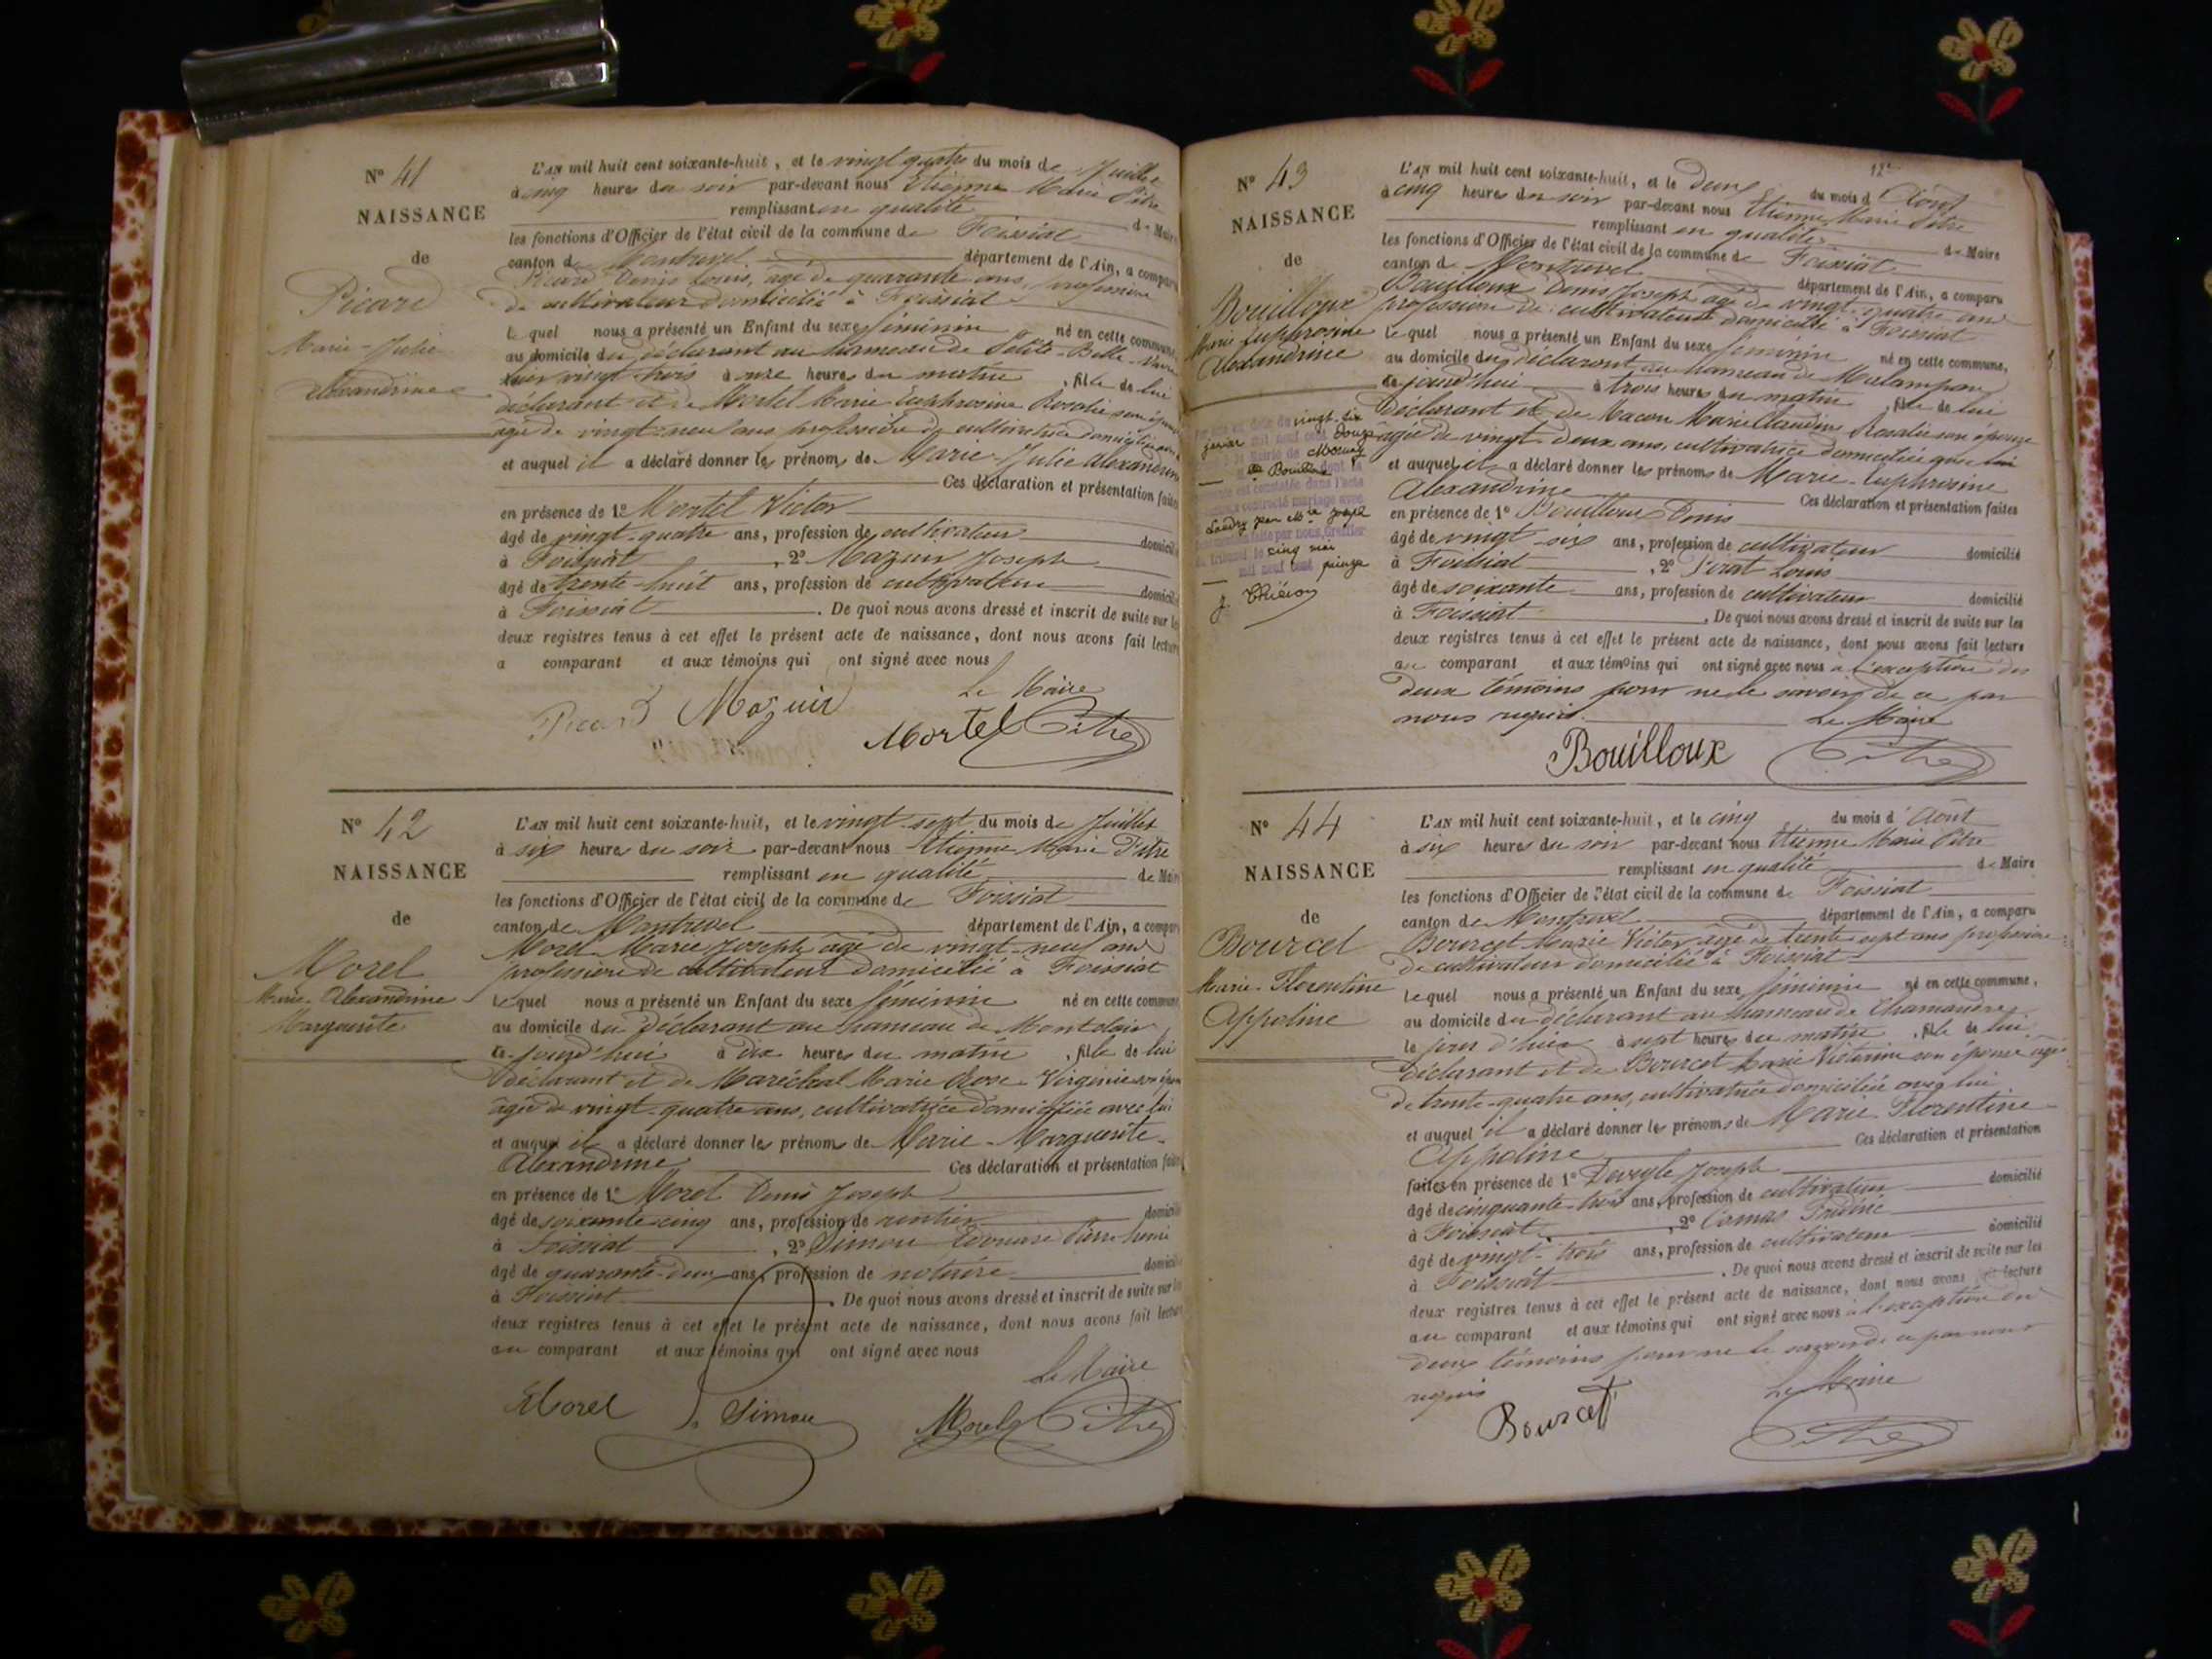 N° 41
NAISSANCE
de
Picard
Marie-Julie
Alexandrine
L'AN mil huit cent soixante-huit, et le vingt quatre du mois de Juillet
à cinq heures du soir par-devant nous Etienne Marie Pitre
remplissant en qualité de Maire
les fonctions d'Officier de l'état civil de la commune de Foissiat
canton de Montrevel département de l'Ain, a comparu
Picard Denis Louis, âgé de quarante ans, profession
de cultivateur domicilié à Foissiat
Lequel nous a présenté un Enfant du sexe féminin né en cette commune
au domicile du déclarant au hameau de Petite-Belle-
hier vingt trois à onze heures du matin, fille de lui
déclarant et de Mortel Marie Euphrosine Rosalie son épouse
âgée de vingt-neuf ans profession de cultivatrice domiciliée
et auquel il a déclaré donner les prénoms de Marie-Julie Alexandrine
Ces déclaration et présentation faites
en présence de 1° Mortel Victor
âgé de vingt-quatre ans, profession de cultivateur domicilié
à Foissiat, 2° Mazuir Joseph
âgé de trente-huit ans, profession de cultivateur domicilié
à Foissiat. De quoi nous avons dressé et inscrit de suite sur les
deux registres tenus à cet effet le présent acte de naissance, dont nous avons fait lecture
a comparant et aux témoins qui ont signé avec nous
Le Maire
Picard Mazuir Mortel Pitre
N° 42
NAISSANCE
de
Morel
Marie-Alexandrine
Marguerite
L'AN mil huit cent soixante-huit, et le vingt-sept du mois de Juillet
à six heures du soir par-devant nous Etienne Marie Pitre
remplissant en qualité de Maire
les fonctions d'Officier de l'état civil de la commune de Foissiat
canton de Montrevel département de l'Ain, a comparu
Morel Marie Joseph âgé de vingt-neuf ans
profession de cultivateur domicilié à Foissiat
Lequel nous a présenté un Enfant du sexe féminin né en cette commune
au domicile du déclarant au hameau de Montclair
ce jourd'hui à dix heures du matin, fille de lui
déclarant et de Maréchal Marie Rose-Virginie son épouse
âgée de vingt-quatre ans, cultivatrice domiciliée avec lui
et auquel il a déclaré donner les prénoms de Marie-Marguerite-
Alexandrine Ces déclaration et présentation faites
en présence de 1° Morel Denis Joseph
âgé de soixante-cinq ans, profession de rentier domicilié
à Foissiat, 2° Simon Edouard Pierre Henri
âgé de quarante-deux ans, profession de notaire domicilié
à Foissiat. De quoi nous avons dressé et inscrit de suite sur les
deux registres tenus à cet effet le présent acte de naissance, dont nous avons fait lecture
au comparant et aux témoins qui ont signé avec nous
Le Maire
Morel Simon Morel Pitre
N° 43
NAISSANCE
de
Bouilloux
Marie Euphrosine
Alexandrine
vingt-six
janvier mil neuf cent douze
la Mairie de
Bouilloux dont la
est constatée dans l'acte
a contracté mariage avec
Landry
faite par nous, Greffier
du tribunal le cinq mai
mil neuf cent quinze
L'AN mil huit cent soixante-huit, et le deux du mois d'Août
à cinq heures du soir par-devant nous Etienne Marie Pitre
remplissant en qualité de Maire
les fonctions d'Officier de l'état civil de la commune de Foissiat
canton d Montrevel département de l'Ain, a comparu
Bouilloux Denis Joseph âgé de vingt-quatre ans
profession de cultivateur domicilié à Foissiat
Lequel nous a présenté un Enfant du sexe féminin né en cette commune,
au domicile du déclarant au hameau de Malampan
ce jourd'hui à trois heures du matin, fille de lui
déclarant et de Macon Marie Claudine Rosalie son épouse
âgée de vingt-deux ans, cultivatrice domiciliée avec lui
et auquel il a déclaré donner les prénoms de Marie-Euphrosine
Alexandrine Ces déclaration et présentation faites
en présence de 1° Bouilloux Denis
âgé de vingt-six ans, profession de cultivateur domicilié
à Foissiat, 2° Louis
âgé de soixante ans, profession de cultivateur domicilié
à Foissiat. De quoi nous avons dressé et inscrit de suite sur les
deux registres tenus à cet effet le présent acte de naissance, dont nous avons fait lecture
au comparant et aux témoins qui ont signé avec nous à l'exception des
deux témoins pour ne le savoir de ce par
nous requis. Le Maire
Bouilloux Pitre
N° 44
NAISSANCE
de
Bourcet
Marie-Florentine
Appoline
L'AN mil huit cent soixante-huit, et le cinq du mois d'Août
à six heures du soir par-devant nous Etienne Marie Pitre
remplissant en qualité de Maire
les fonctions d'Officier de l'état civil de la commune de Foissiat
canton de Montrevel département de l'Ain, a comparu
Bourcet Marie Victor âgé de trente-sept ans profession
de cultivateur domicilié à Foissiat
Lequel nous a présenté un Enfant du sexe féminin né en cette commune,
au domicile du déclarant au hameau de Chamandre
le jour d'hier à sept heures du matin, fille de lui
déclarant et de Bourcet Marie Victorine son épouse âgée
de trente-quatre ans, cultivatrice domiciliée avec lui
et auquel il a déclaré donner les prénoms de Marie-Florentine
Appoline Ces déclaration et présentation
faites en présence de 1° Deveyle Joseph
âgé de cinquante-trois ans, profession de cultivateur domicilié
à Foissiat, 2° Comas
âgé de vingt-trois ans, profession de cultivateur domicilié
à Foissiat. De quoi nous avons dressé et inscrit de suite sur les
deux registres tenus à cet effet le présent acte de naissance, dont nous avons fait lecture
au comparant et aux témoins qui ont signé avec nous à l'exception des
deux témoins pour ne le savoir de ce par nous
requis Le Maire
Bourcet Pitre